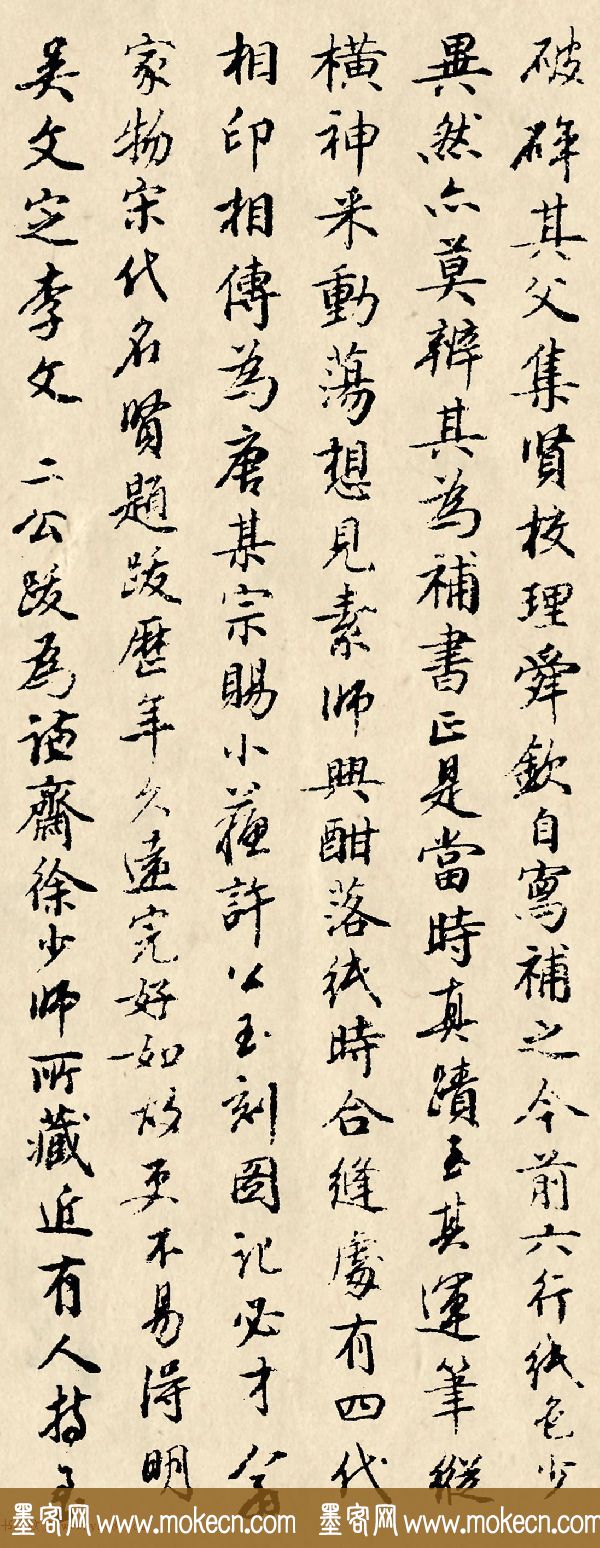 破碎其父集賢校理舜欽自寫補之今前六行紙色少
異然亦莫辨其為補書正是當時真蹟玉其運筆縱
橫神采動蕩想見素師興酣落紙時合縫處有四代
相印相傳為唐某宗賜小蘓許公玉刻圖記必才翁
家物宋代名賢題跋歷年久遠完好如故更不易得明
吳文定李文 二公跋為 齋徐少師所藏近有人持
墨客网 www.mokecn.com 墨客网 www.mokecn.com